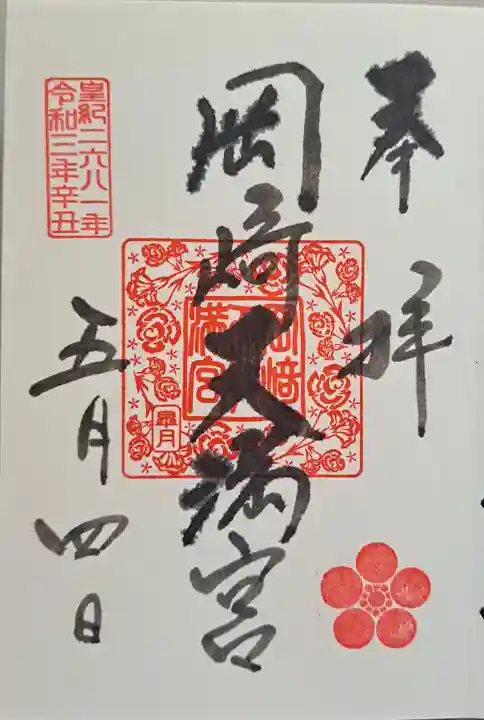 奉拝
岡崎天満宮
岡﨑天満宮
皐月
皇紀二六八一年
令和三年辛丑
五月四日